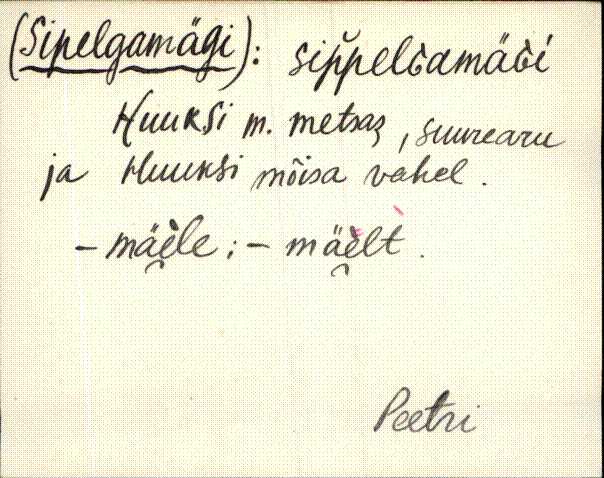 (Sipelgamägi): sip̆pelɢamäɢi
Huuksi m. metsas, Suurearu
ja Huuksi mõisa vahel.
- mäe̮le; - mäe̮lt.
Peetri